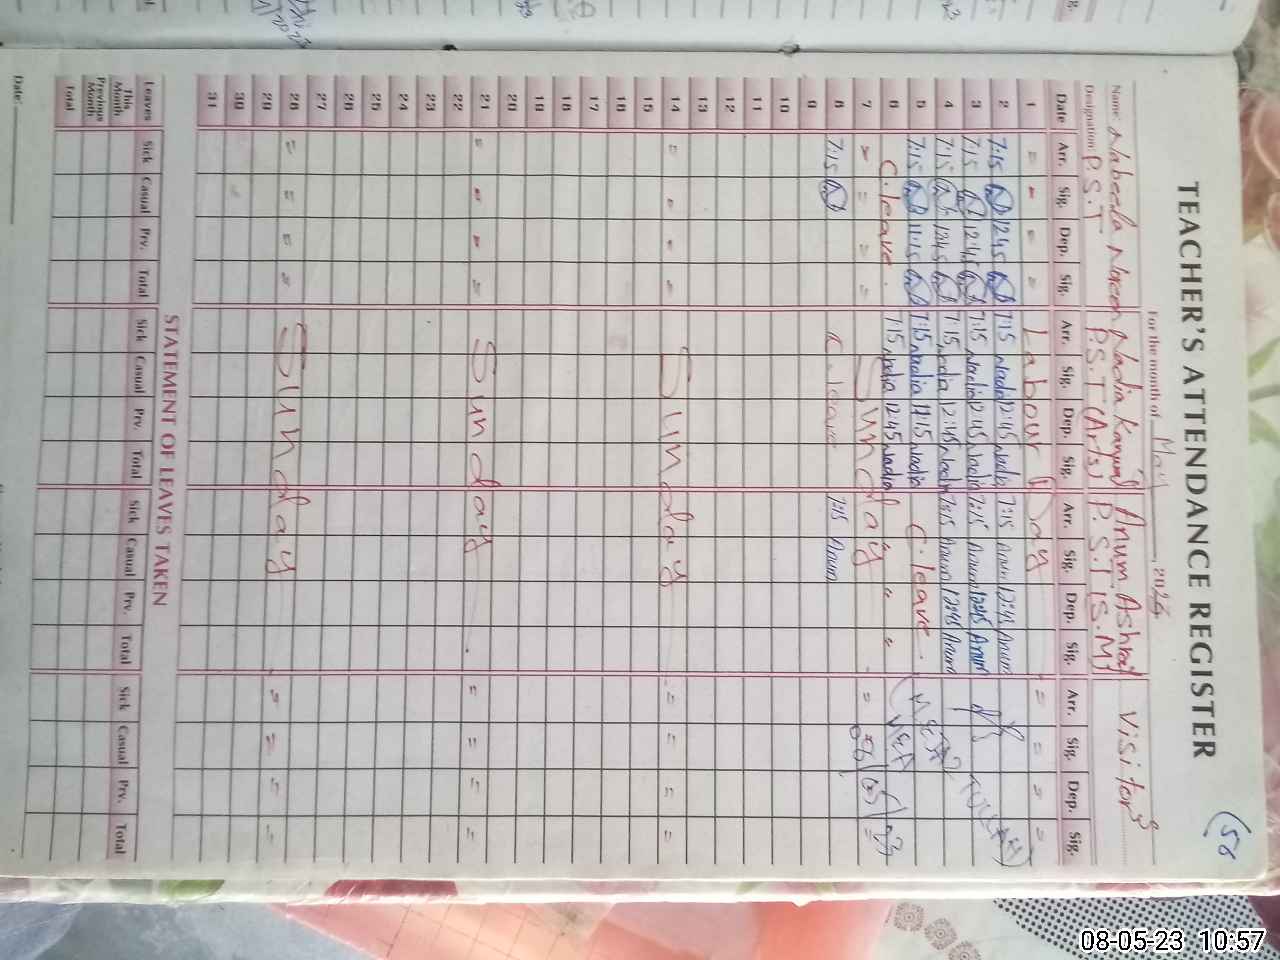 (56
TEACHER'S ATTENDANCE REGISTER
For the month of May, 2023
Name: Nabeela Noreen Nadia Kanwal Anum Ashraf Visitors
Designation: P.S.T P.S.T (Arts) P.S.T (S.M)
Date Arr. Sig. Dep. Sig. Arr. Sig. Dep. Sig. Arr. Sig. Dep. Sig. Arr. Sig. Dep. Sig.
1 = = = = Labour Day = = = =
2 7:15 12:45 7:15 Nadia 12:45 Nadia 7:15 Anum 12:45 Anum
3 7:15 12:45 7:15 Nadia 12:45 Nadia 7:15 Anum 12:45 Anum
4 7:15 12:45 7:15 Nadia 12:45 Nadia 7:15 Anum 12:45 Anum
5 7:15 11:15 7:15 Nadia 11:15 Nadia C. leave.
6 C. leave. 7:15 Nadia 12:45 Nadia
7 = = = = Sunday " " = =
8 7:15 C. leave 7:15 Anum
9
10
11
12
13
14 = = = = Sunday = = = =
15
16
17
18
19
20
21 = = = = Sunday = = = =
22
23
24
25
26
27
28 = = = = Sunday = = = =
29
30
31
STATEMENT OF LEAVES TAKEN
Leaves Sick Casual Prv. Total Sick Casual Prv. Total Sick Casual Prv. Total Sick Casual Prv. Total
This Month
Previous Month
Total
Date:
08-05-23 10:57